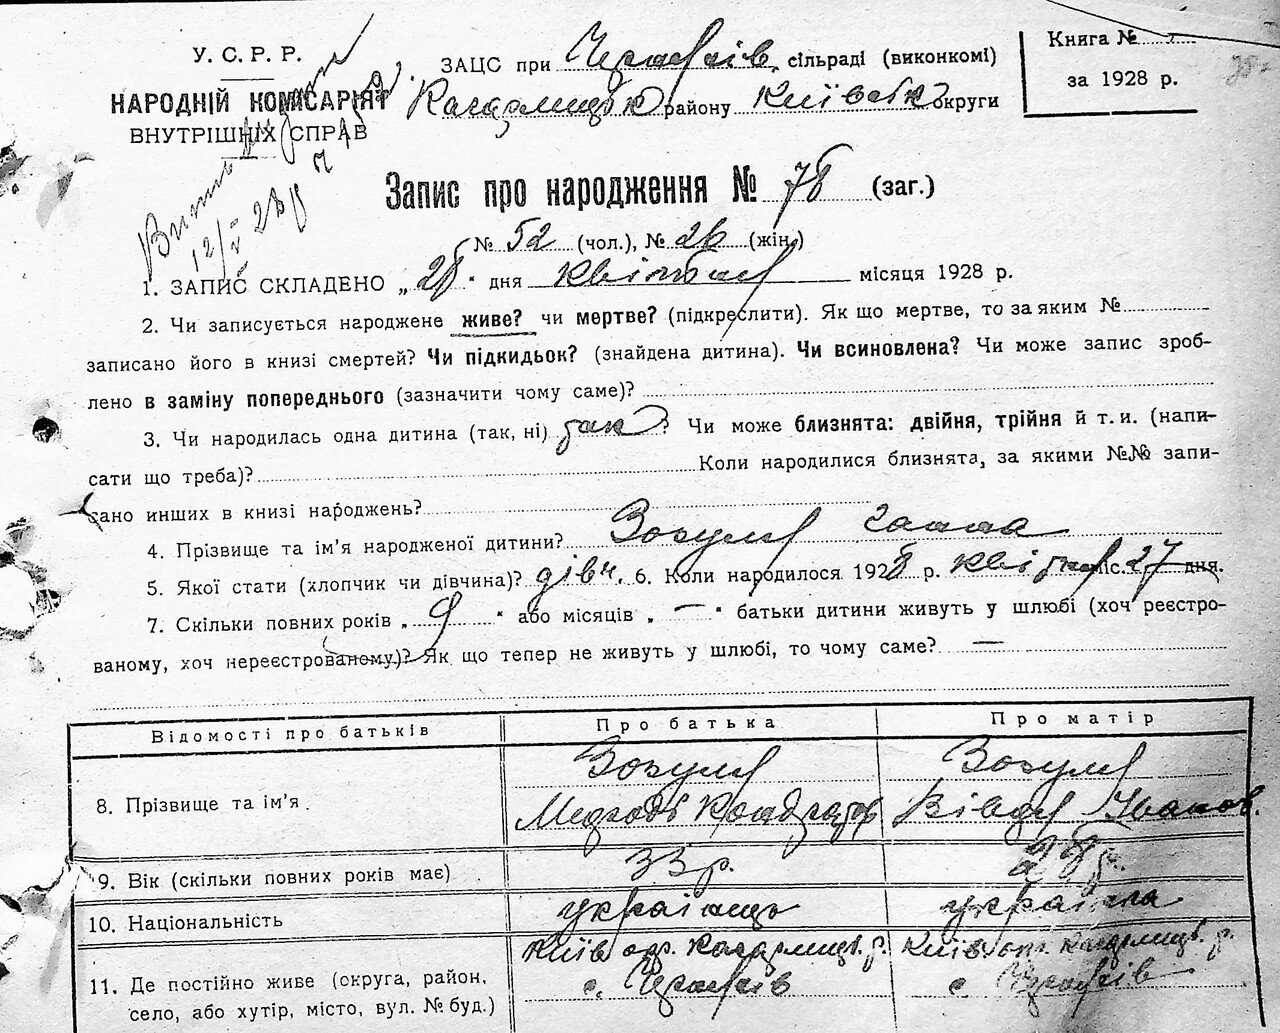 У. С. Р. Р.
НАРОДНІЙ КОМІСАРІЯТ
ВНУТРІШНІХ СПРАВ
ЗАЦС при сільраді (виконкомі)
Кагарлицьк району Київськ округи
Книга №
за 1928 р.
12/V 28 р
Запис про народження № 78 (заг.)
№ 52 (чол.), № 26 (жін.)
1. ЗАПИС СКЛАДЕНО „28“ дня квітня місяця 1928 р.
2. Чи записується народжене живе? чи мертве? (підкреслити). Як що мертве, то за яким №
записано його в книзі смертей? Чи підкидьок? (знайдена дитина). Чи всиновлена? Чи може запис зроб-
лено в заміну попереднього (зазначити чому саме)?
3. Чи народилась одна дитина (так, ні) так? Чи може близнята: двійня, трійня й т. и. (напи-
сати що треба)? Коли народилися близнята, за якими №№ запи-
сано инших в книзі народжень?
4. Прізвище та ім’я народженої дитини? Зозуля Ганна
5. Якої стати (хлопчик чи дівчина)? дівч. 6. Коли народилося 1928 р. квітня міс. 27 дня.
7. Скільки повних років „9“ або місяців „—“ батьки дитини живуть у шлюбі (хоч реєстро-
ваному, хоч нереєстрованому)? Як що тепер не живуть у шлюбі, то чому саме? —
Відомості про батьків Про батька Про матір
8. Прізвище та ім’я Зозуля Зозуля
Кондратов Іванов.
9. Вік (скільки повних років має) 33 р. 28 р.
10. Національність українць українка
11. Де постійно живе (округа, район, село, або хутір, місто, вул. № буд.) Київ окр. Кагарлицьк. р. Київ окр. Кагарлицьк. р.
с. с.